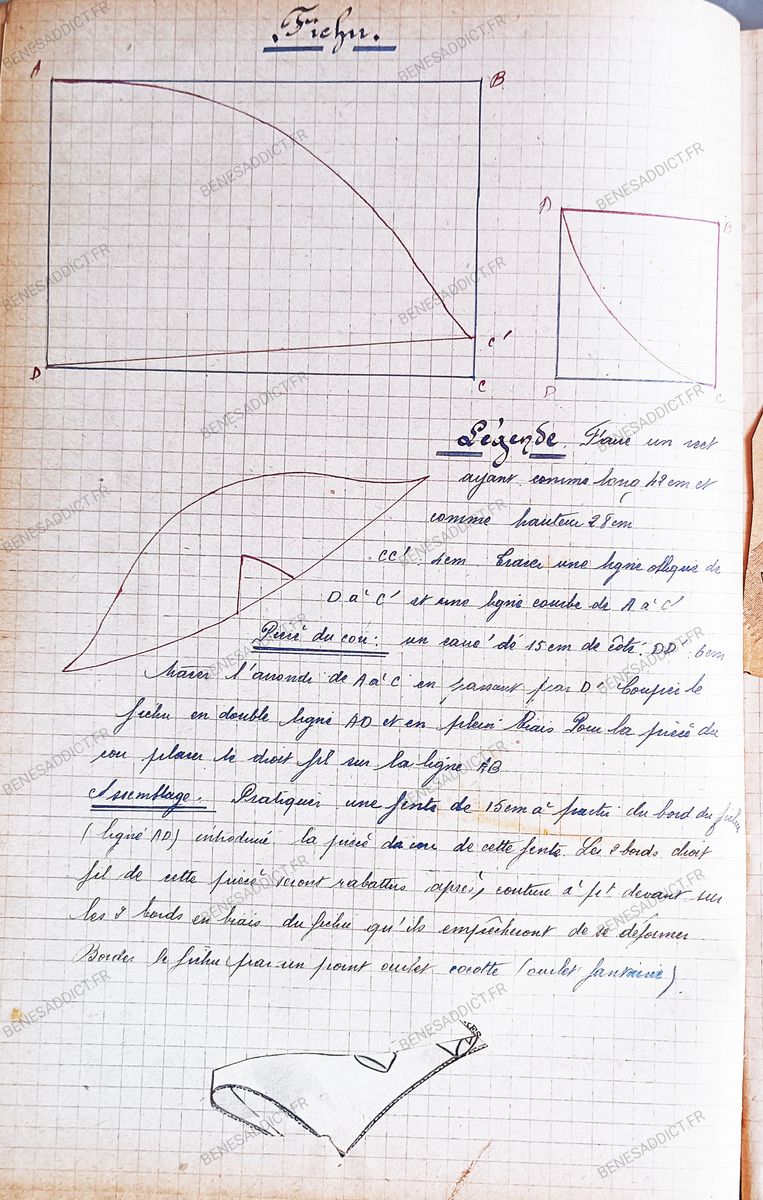 Fichu.
A
B
A
B
D
C'
C
D
C
Légende. Faire un rect
ayant comme long 42cm et
comme hauteur 28cm
CC' 4cm. Tracer une ligne oblique de
D à C' et une ligne courbe de A à C'
Pièce du cou : un carré de 15cm de côté. DD' : 6cm
tracer l'arrondi de A à C en passant par D'. Couper le
fichu en double ligne AD et en plein biais Pour la pièce du
cou placer le droit fil sur la ligne AB
Assemblage. Pratiquer une fente de 15cm à partir du bord du fichu
(ligne AD) introduire la pièce du cou de cette fente. Les 2 bords droit
fil de cette pièce seront rabattus après couture à pt devant sur
les 2 bords en biais du fichu qu'ils empêcheront de se déformer
Border le fichu par un point ourlet cocotte (ourlet fantaisie).
BENESADDICT.FR